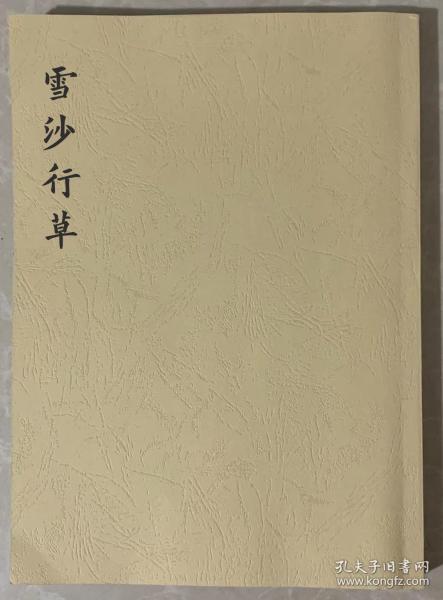 雪沙行草
孔夫子旧书网
www.kongfz.com